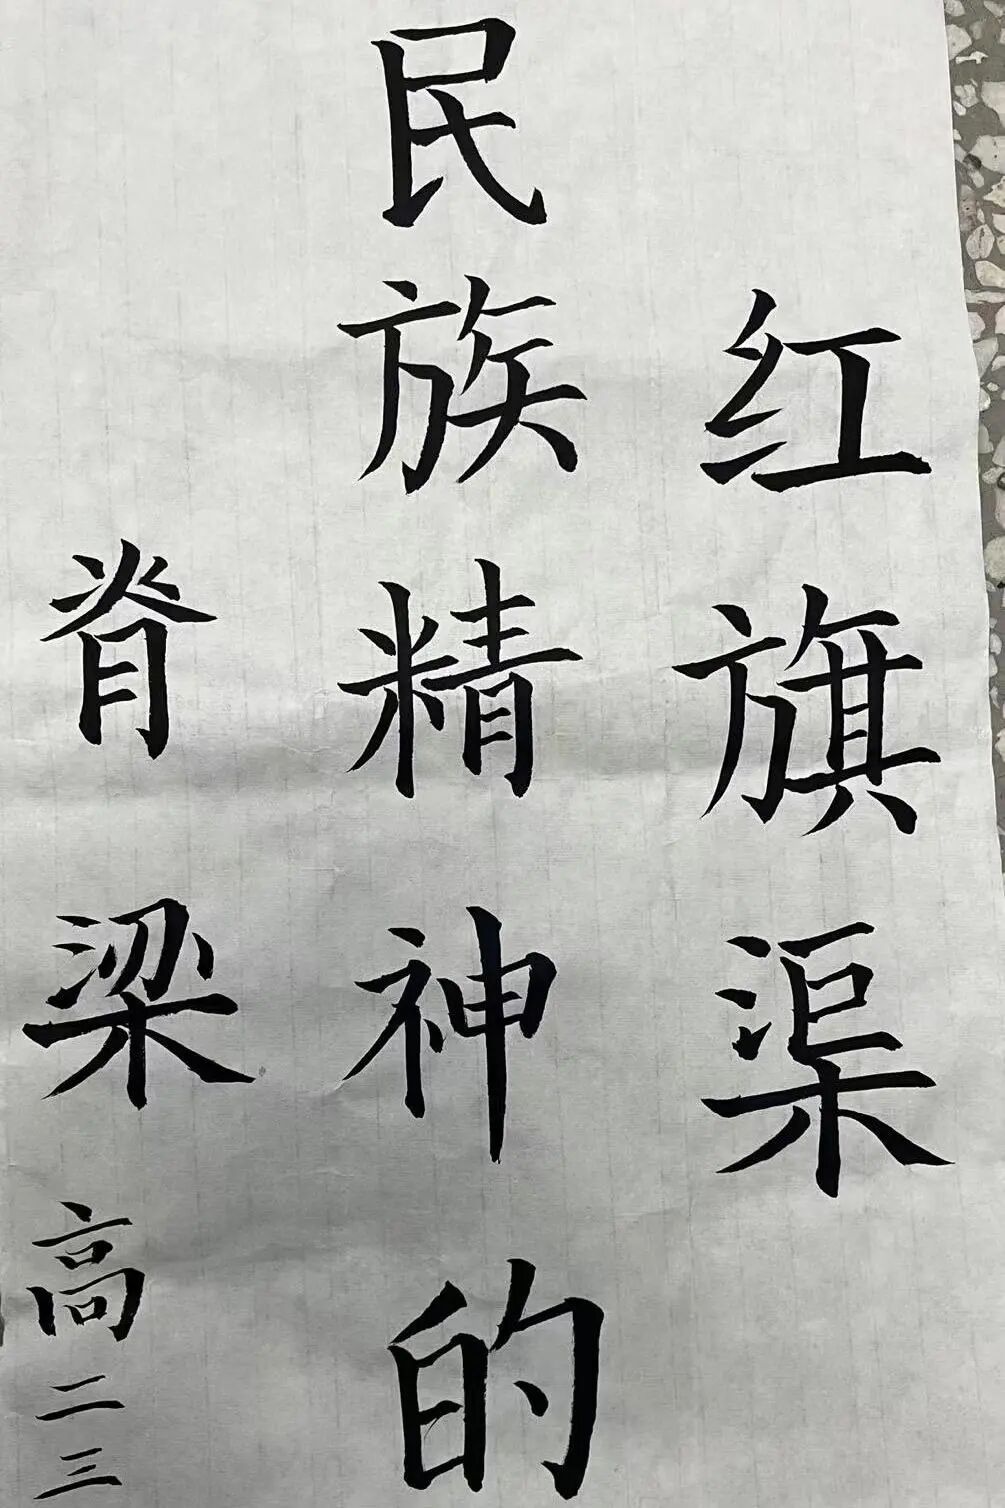 红旗渠
民族精神的
脊梁
高二三